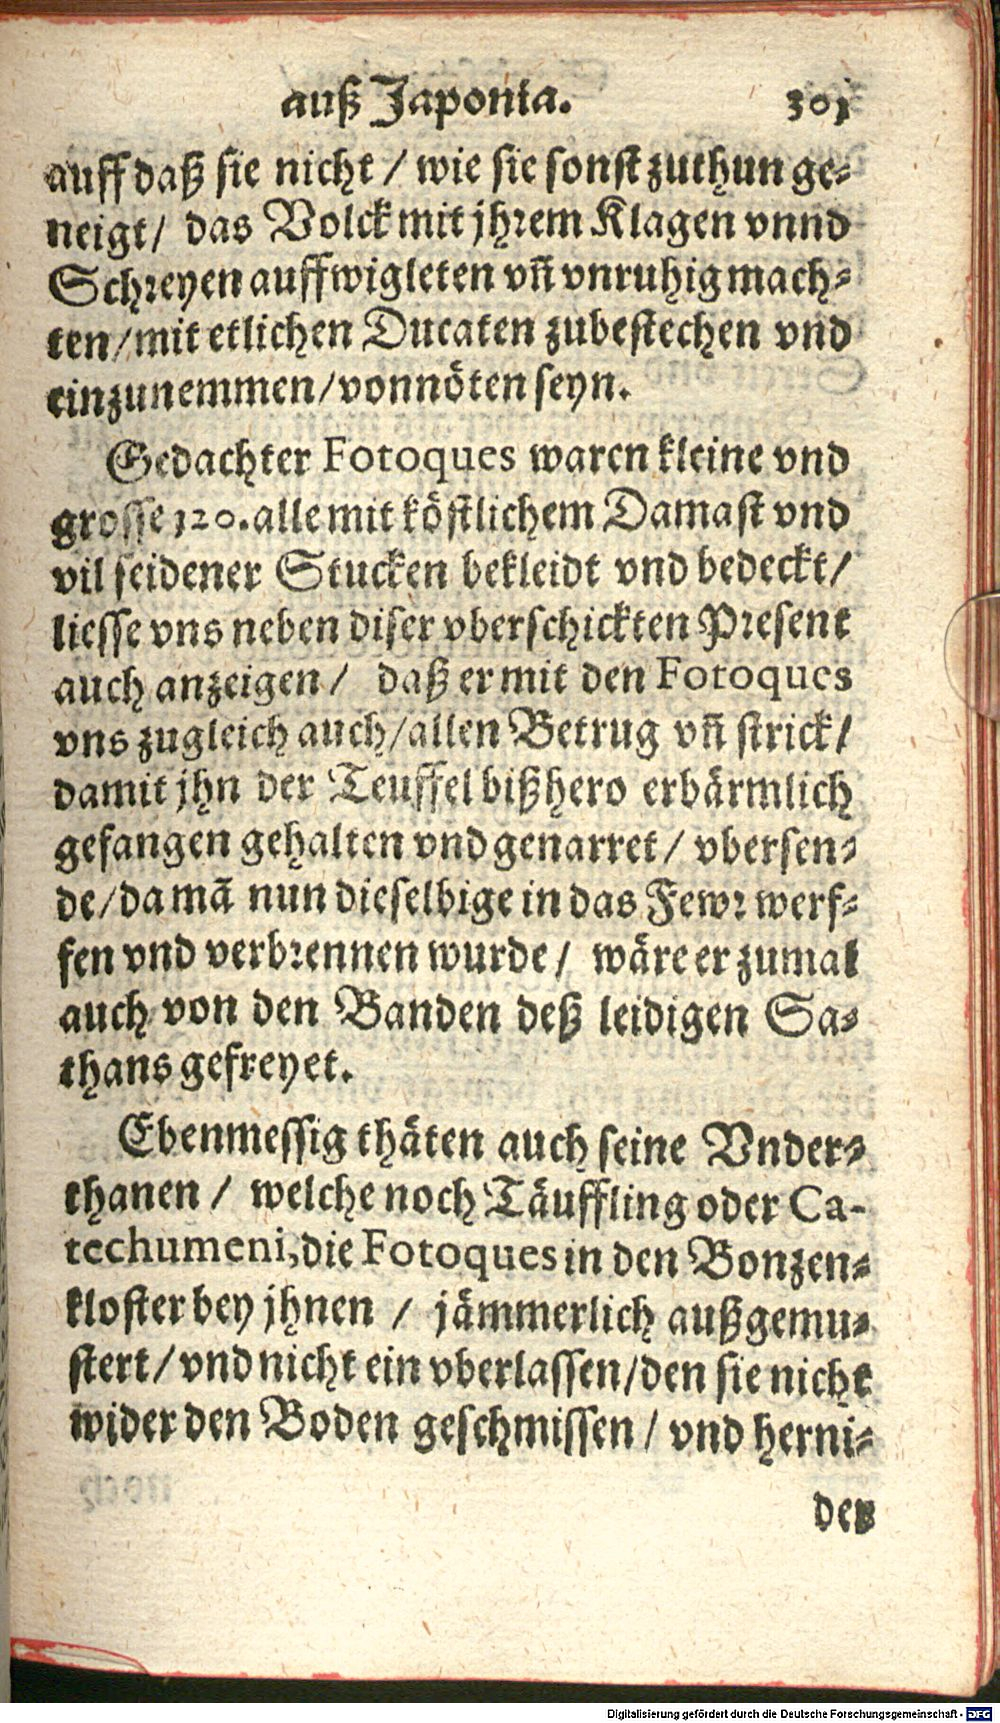 auß Japonia. 301
auff daß sie nicht / wie sie sonst zuthun ge-
neigt / das Volck mit jhrem Klagen vnnd
Schreyen auffwigleten vñ vnruhig mach-
ten / mit etlichen Ducaten zubestechen vnd
einzunemmen / vonnöten seyn.
Gedachter Fotoques waren kleine vnd
grosse 120. alle mit köstlichem Damast vnd
vil seidener Stucken bekleidt vnd bedeckt /
liesse vns neben diser vberschickten Present
auch anzeigen / daß er mit den Fotoques
vns zugleich auch / allen Betrug vñ strick /
damit jhn der Teuffel bißhero erbärmlich
gefangen gehalten vnd genarret / vbersen-
de / da mã nun dieselbige in das Fewr werf-
fen vnd verbrennen wurde / wäre er zumal
auch von den Banden deß leidigen Sa-
thans gefreyet.
Ebenmessig thäten auch seine Vnder-
thanen / welche noch Täuffling oder Ca-
techumeni, die Fotoques in den Bonzen-
kloster bey jhnen / jämmerlich außgemu-
stert / vnd nicht ein vberlassen / den sie nicht
wider den Boden geschmissen / vnd herni-
der
Digitalisierung gefördert durch die Deutsche Forschungsgemeinschaft - DFG